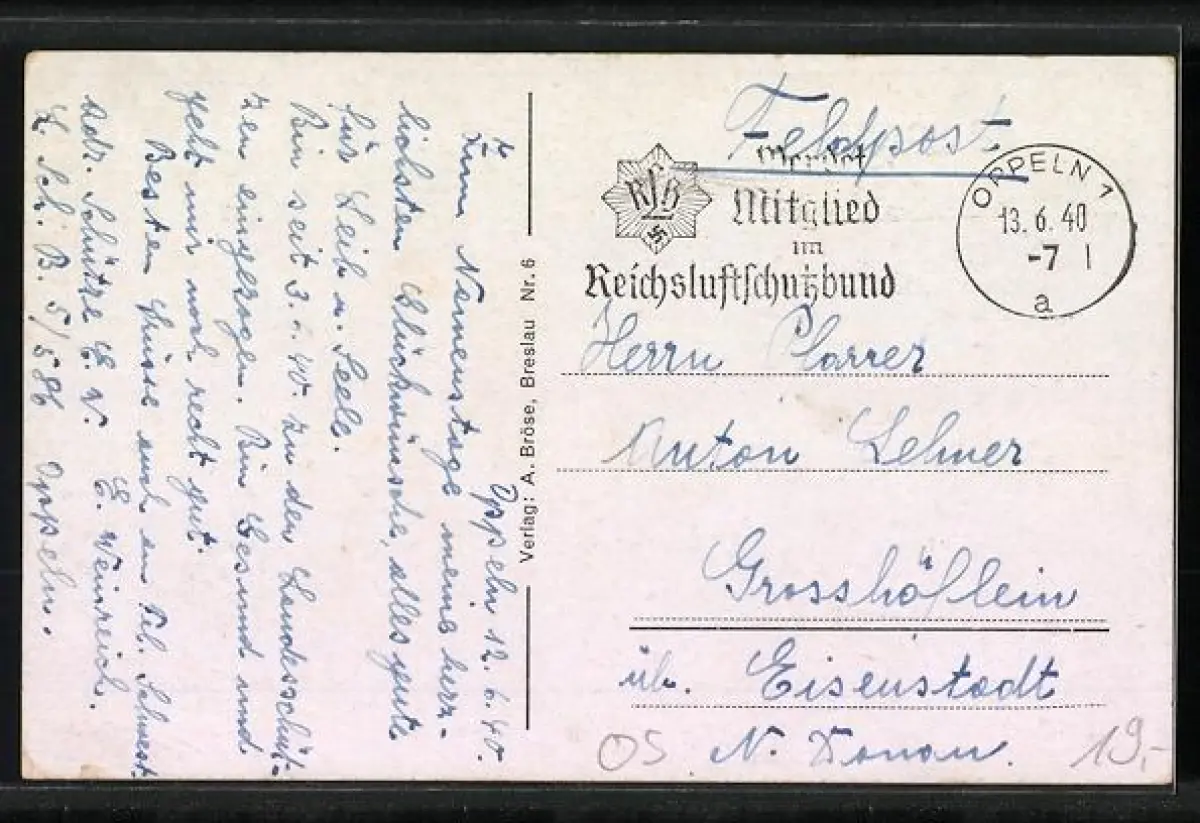 Oppeln 12.6.40.
Zum Namenstage meine herz-
lichsten Glückwünsche, alles gute
für Leib u. Seele.
Bin seit 3.6.40. zu den Landesschüt-
zen eingezogen. Bin Gesund und
geht mir noch recht gut.
Besten Grüsse auch an Frl. Schwest.
E. Weinreich.
Adr. Schütze E. W.
L. Sch. B. 5/586 Oppeln.
Verlag: A. Bröse, Breslau Nr. 6
Feldpost
Werdet
RLB
Mitglied
im
Reichsluftschutzbund
OPPELN 1
13.6.40
-7
a
Herrn Pfarrer
Anton Lehner
Grosshöflein
üb. Eisenstadt
N. Donau.
OS
19,-